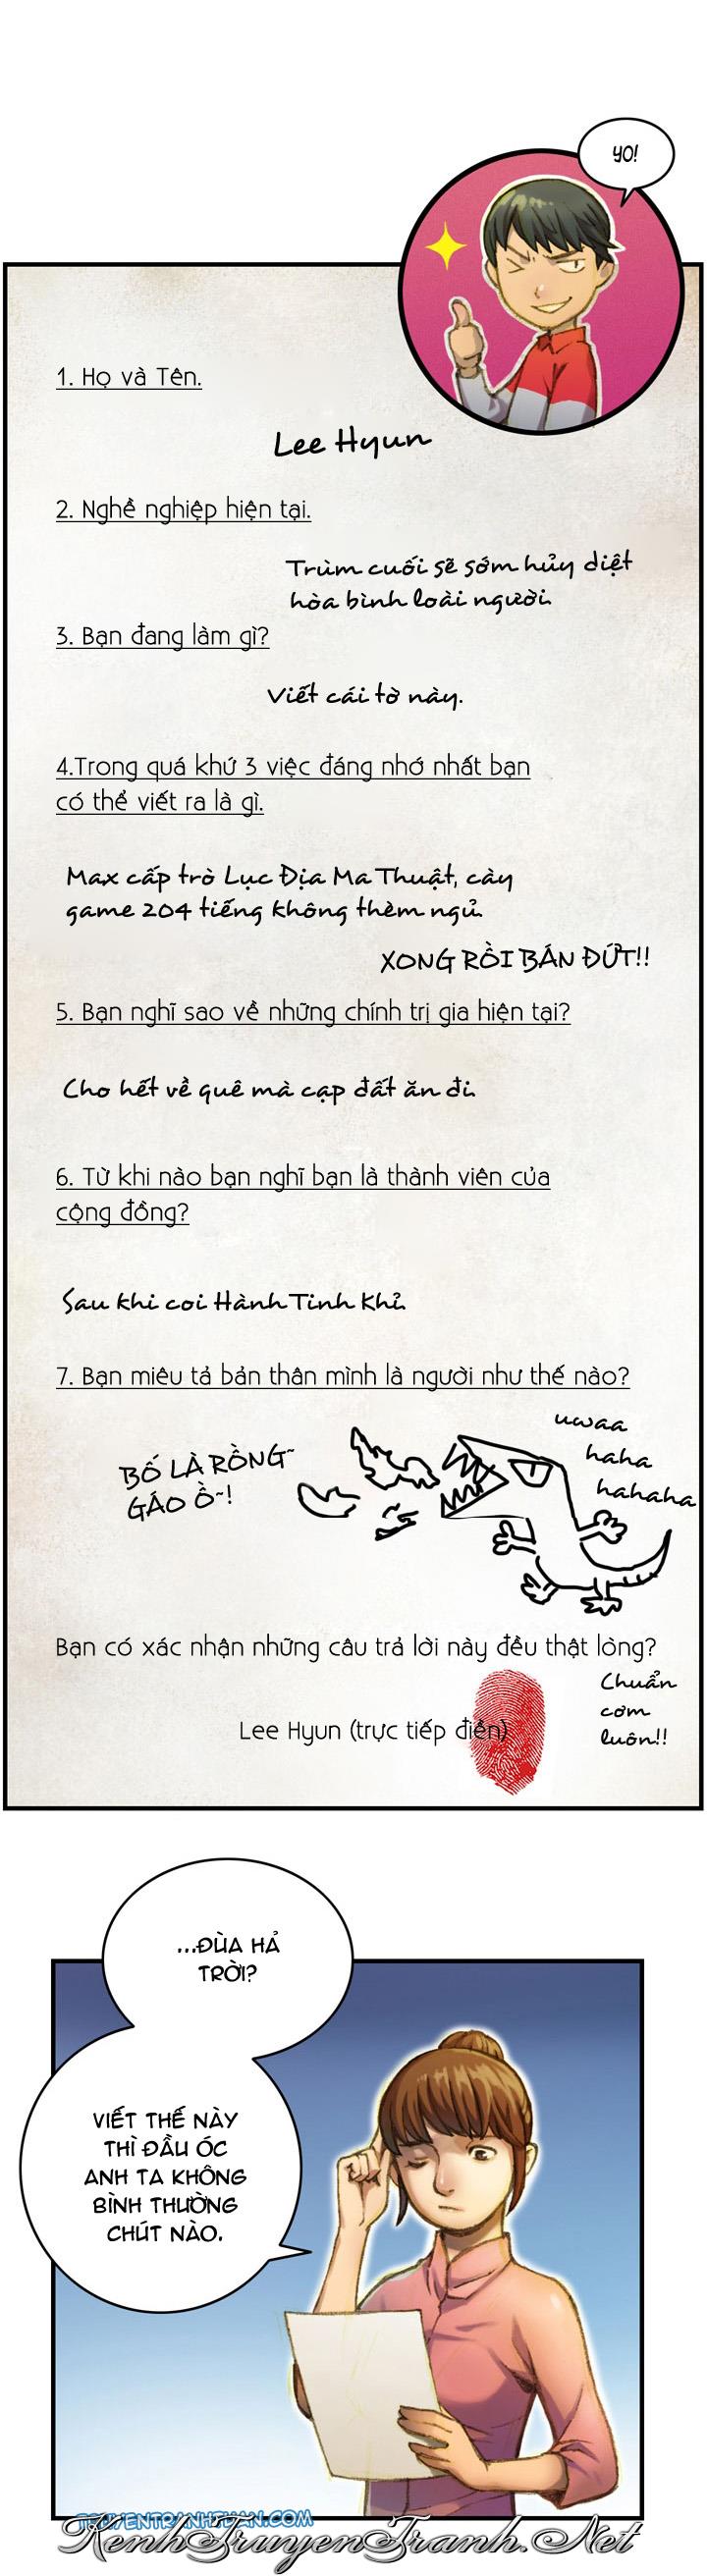 YO!
1. Họ và Tên.
Lee Hyun
2. Nghề nghiệp hiện tại.
Trùm cuối sẽ sớm hủy diệt
hòa bình loài người.
3. Bạn đang làm gì?
Viết cái tờ này.
4.Trong quá khứ 3 việc đáng nhớ nhất bạn
có thể viết ra là gì.
Max cấp trò Lục Địa Ma Thuật, cày
game 204 tiếng không thèm ngủ.
XONG RỒI BÁN ĐỨT!!
5. Bạn nghĩ sao về những chính trị gia hiện tại?
Cho hết về quê mà cạp đất ăn đi.
6. Từ khi nào bạn nghĩ bạn là thành viên của
cộng đồng?
Sau khi coi Hành Tinh Khỉ.
7. Bạn miêu tả bản thân mình là người như thế nào?
BỐ LÀ RỒNG~
GÁO Ồ~!
uwaa
haha
hahaha
Bạn có xác nhận những câu trả lời này đều thật lòng?
Lee Hyun (trực tiếp điền)
Chuẩn
cơm
luôn!!
...ĐÙA HẢ
TRỜI?
VIẾT THẾ NÀY
THÌ ĐẦU ÓC
ANH TA KHÔNG
BÌNH THƯỜNG
CHÚT NÀO.
TRUYENTRANHTUAN.COM
KenhTruyenTranh.Net